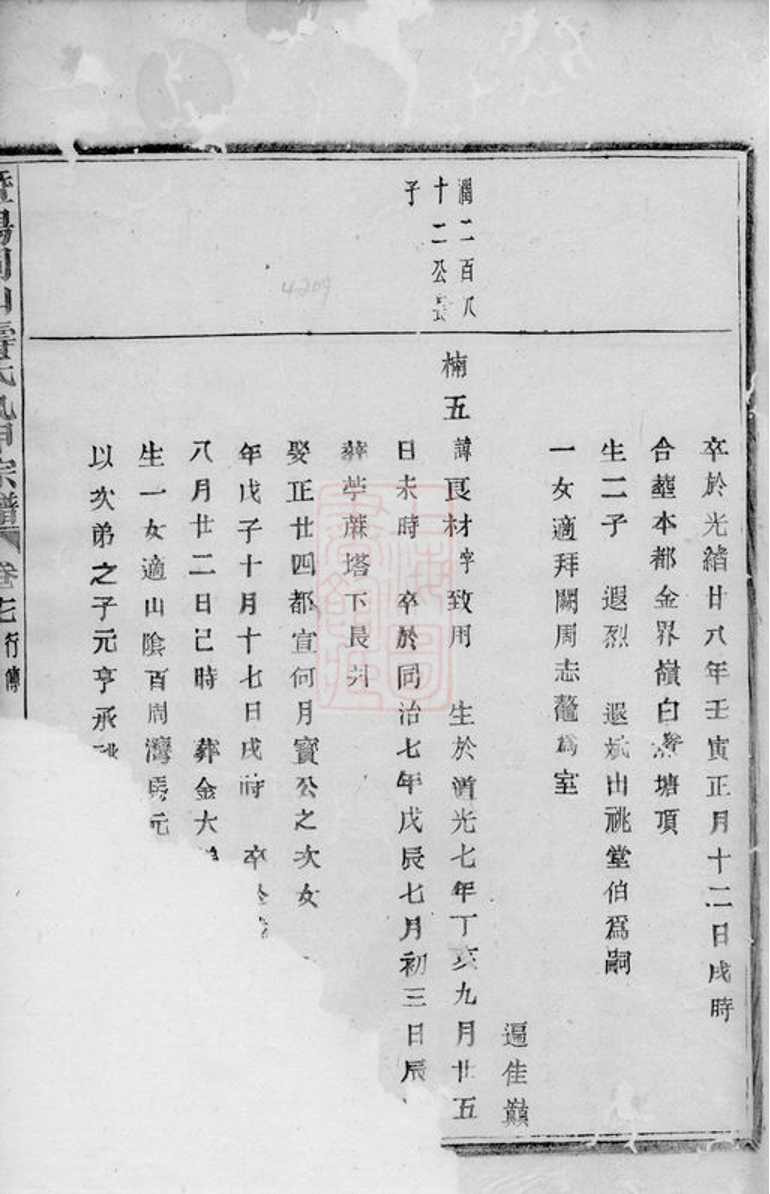 卒於光緒廿八年壬寅正月十二日戌時
合葬本都金界嶺白塘頂
生二子 遐烈 遐斌出祧堂伯為嗣
一女適拜闕周志鰲為室
遍佳巔
潤二百八十二公長子
楠五 諱良材字致用 生於道光七年丁亥九月廿五
日未時 卒於同治七年戊辰七月初三日辰
葬苧蔴塔下長
娶正廿四都宣何月寶公之次女
年戊子十月十七日戌時 卒
八月廿二日己時 葬金大
生一女適山陰百周灣 元
以次弟之子元亨承祧
暨陽同山壽氏 宗譜 卷七 行傳
上海圖書館藏
4209